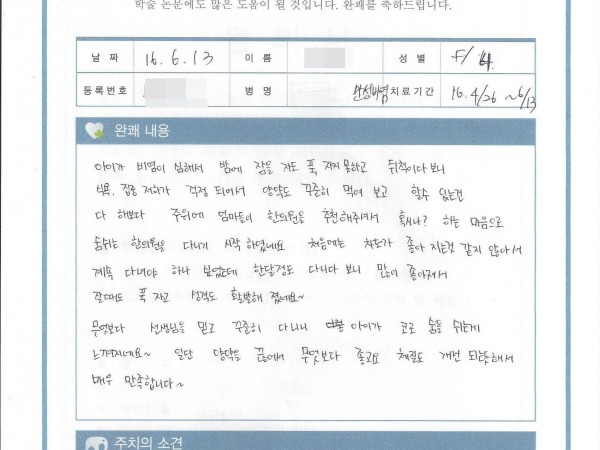 학술 논문에도 많은 도움이 될 것입니다. 완쾌를 축하드립니다.
날 짜 16. 6. 13 이 름 성 별 F/4
등록번호 병 명 만성비염 치료기간 16. 4/26 ~ 6/13
완쾌 내용
아이가 비염이 심해서 밤에 잠을 자도 푹 자지 못하고 뒤척이다 보니
식욕, 집중 저하가 걱정 되어서 양약도 꾸준히 먹여 보고 할수 있는건
다 해보다 주위에 엄마들이 한의원을 추천해주셔서 혹시나? 하는 마음으로
숨쉬는 한의원을 다니기 시작 하였네요 처음에는 차도가 좋아 지는것 같지 않아서
계속 다녀야 하나 싶었는데 한달정도 다니다 보니 많이 좋아져서
잘때도 푹 자고 성격도 활발해 졌네요~
무엇보다 선생님을 믿고 꾸준히 다니니 아이가 코로 숨을 쉬는게
느껴지네요~ 일단 양약을 끊어서 무엇보다 좋고요 체질도 개선 되는듯해서
매우 만족합니다~
주치의 소견